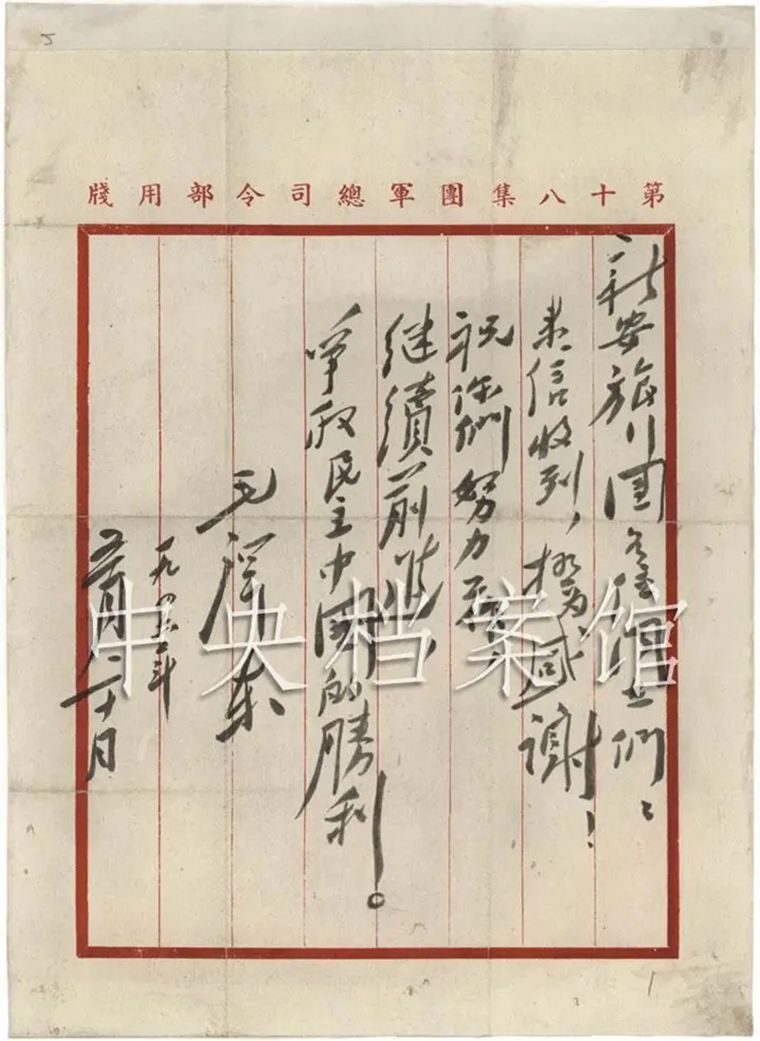 第十八集團軍總司令部用牋
新安旅行團各位同志們：
来信收到，极为感謝！
祝你們努力
继續前進，
爭取民主中國的勝利。
毛澤东
一九四六年
五月二十日
中央档案馆